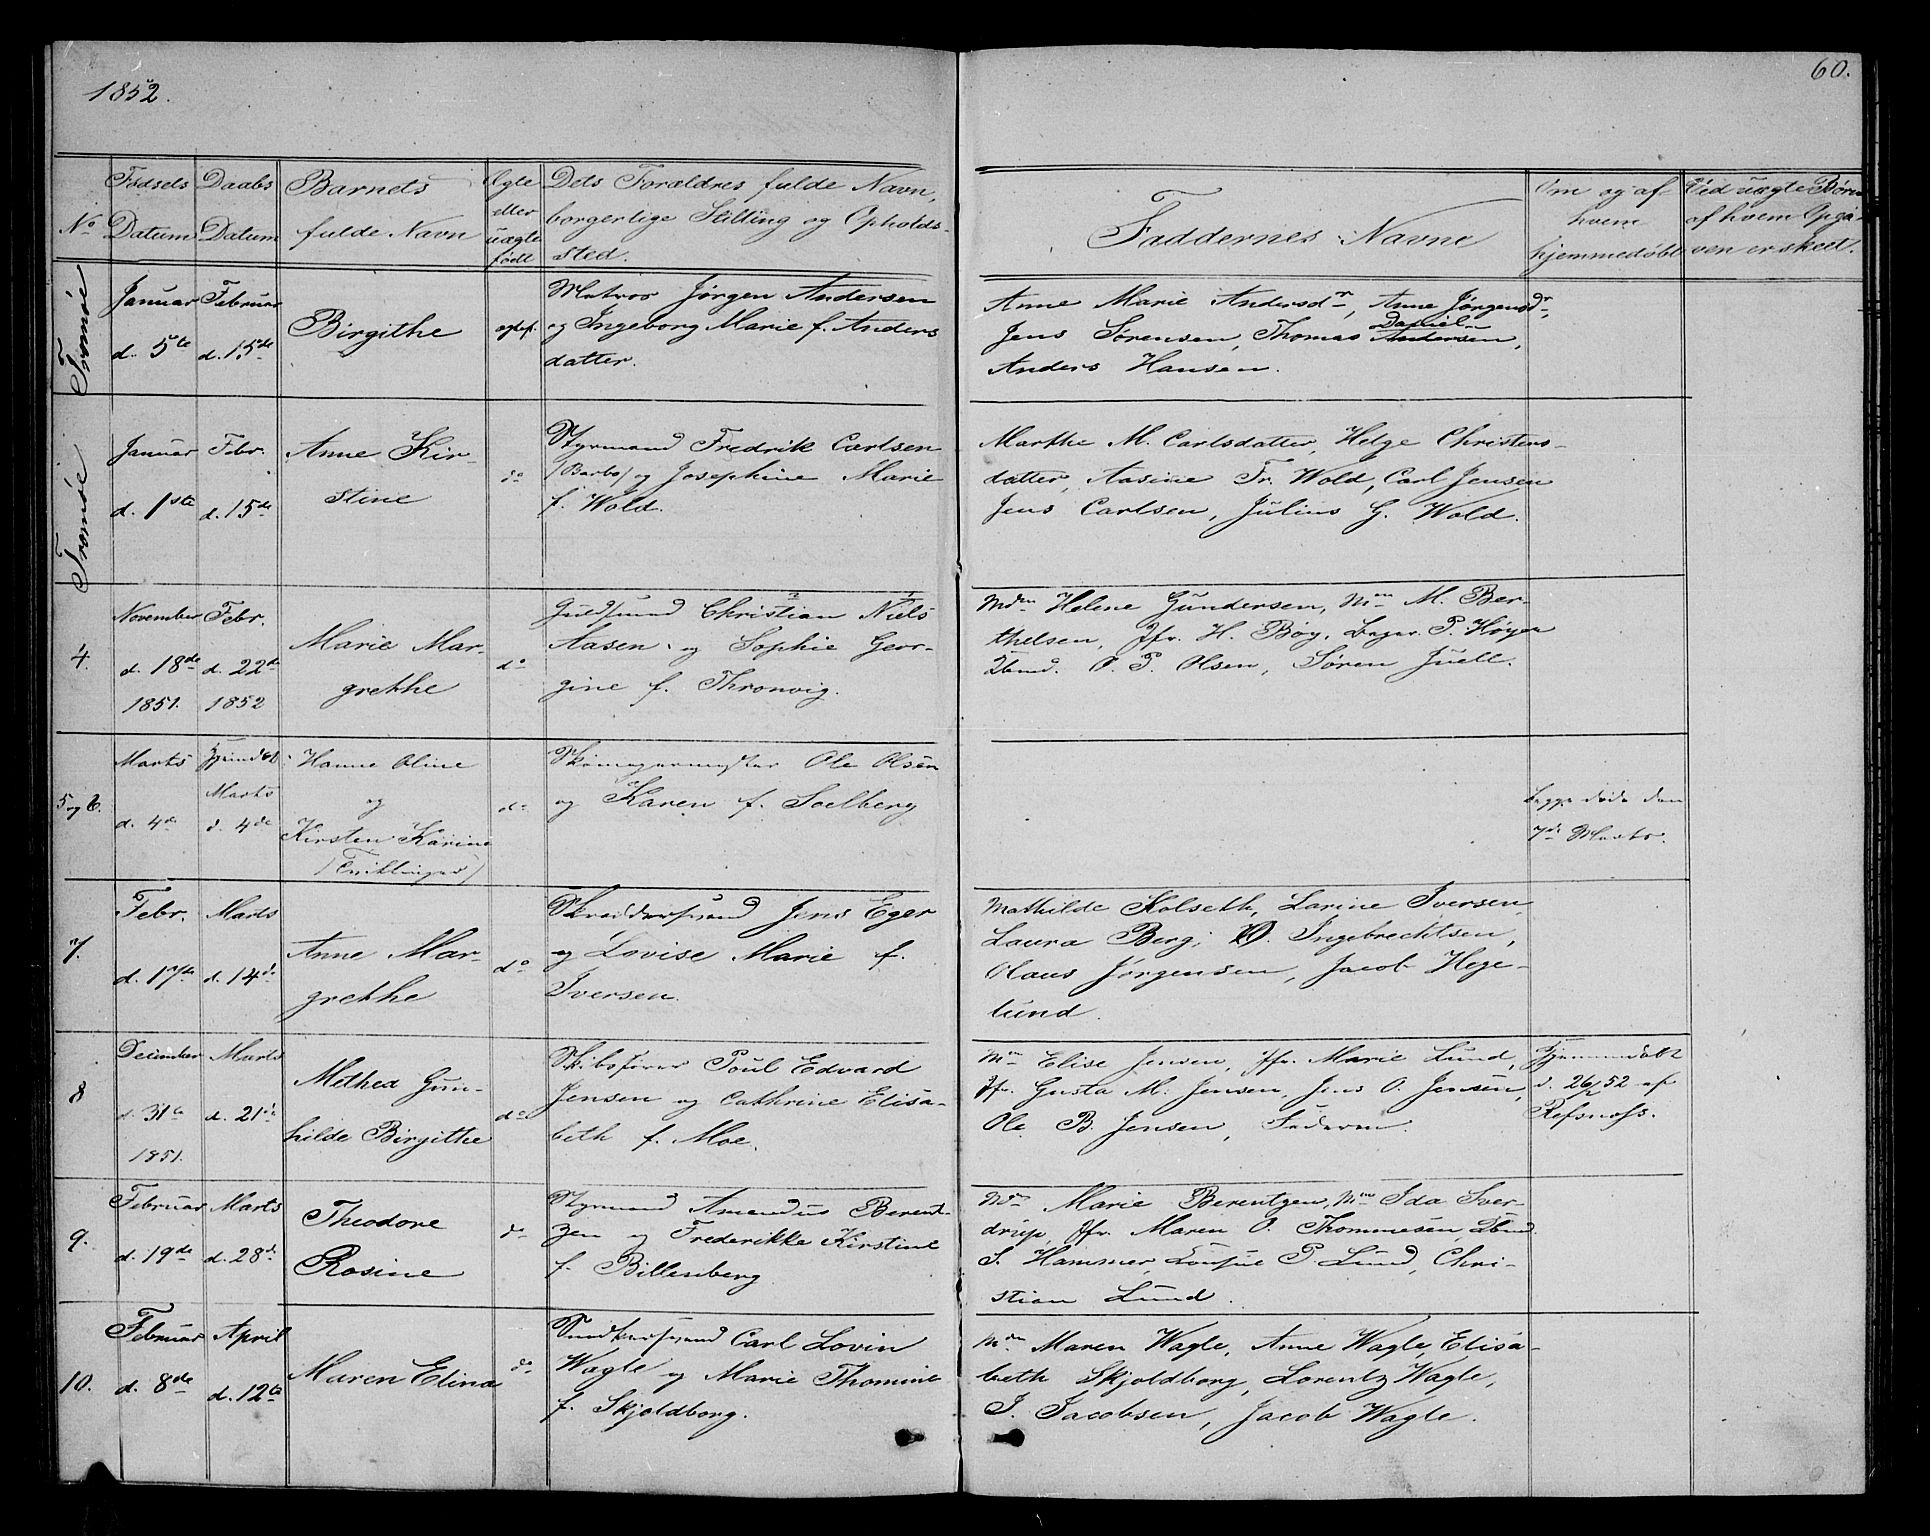 1852.
60.
No
Fødsels Datum
Daabs Datum
Barnets fulde Navn
Ægte eller uægte født
Dets Forældres fulde Navn,
borgerlige Stilling og Opholds-
sted.
Faddernes Navne
Om og af hvem hjemmedøbt
Ved uægte Børn af hvem Opga-
ven er skeet.
Tromøe
Januar d. 5te
Februar d. 15de
Birgithe
ægtef.
Matros Jørgen Andersen
og Ingeborg Marie f. Anders
datter.
Anne Marie Andersdr, Anne Jørgensdr,
Jens Sørensen, Thomas Daniel Andersen,
Anders Hansen.
Tromøe
Januar d. 1ste
Febr. d. 15de
Anne Kir-
stine
do
Styrmand Fredrik Carlsen
/Barbo/ og Josephine Marie
f. Wold.
Marthe M. Carlsdatter, Helge Christens-
datter, Aasine Fr. Wold, Carl Jensen
Jens Carlsen, Julius G. Wold.
4.
November d. 18de 1851.
Febr. d. 22de 1852
Marie Mar-
grethe
do
Guldsmed Christian Niels
Aasen og Sophie Geor-
gine f. Thronvig.
Mdm Helene Gundersen, Mm M. Ber-
thelsen, Jfr. H. Bøg, Bager P. Høyer
O. P. Olsen, Søren Juell.
5 og 6.
Marts d. 4de
Hjemdøbt Marts d. 4de
Hanne Oline
og
Kirsten Karine
/Tvillinger/
do
Skomagermester Ole Olsen
og Karen f. Soelberg
begge døde den
7de Marts.
7.
Febr. d. 17de
Marts d. 14de
Anne Mar-
grethe
do
Skræddersvend Jens Eger
og Lovise Marie f.
Iversen.
Mathilde Kolseth, Larine Iversen,
Laura Berg, O. Ingebrechtsen,
Olaus Jørgensen, Jacob Hege-
lund.
8
December d. 31te 1851.
Marts d. 21de
Methea Gun-
hilde Birgithe
do
Skibsfører Poul Edvard
Jensen og Cathrine Elisa-
beth f. Moe.
Mm Elise Jensen, Jfr. Marie Lund,
Jfr. Gusta M. Jensen, Jens O. Jensen,
Ole B. Jensen, Faderen.
Hjemmedøbt
d. 26/2 52 af
Refsnoss.
9.
Februar d. 19de
Marts d. 28de
Theodore
Rosine
do
Styrmand Amandus Berent-
zen og Frederikke Kirstine
f. Billenberg
Mdm Marie Berentzen, Mm Ida Sver-
drup, Jfr. Maren O. Thommesen,
S. Hammer, P. Lund, Chri-
stian Lund.
10.
Februar d. 8de
April d. 12te
Maren Elina
do
Carl Lovin
Wagle og Marie Thomine
f. Skjoldborg.
Mdm Maren Wagle, Anne Wagle, Elisa-
beth Skjoldborg, Lorentz Wagle,
I. Jacobsen, Jacob Wagle.